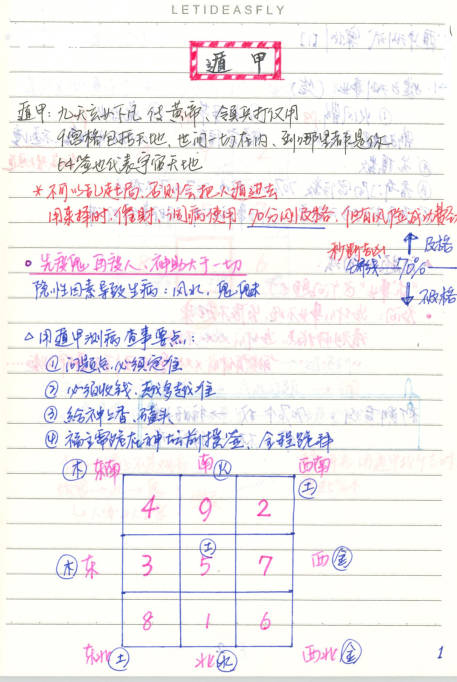 LETIDEASFLY
遁甲
遁甲：九天玄女下凡传黄帝、领兵打仗用
9宫格包括天地、世间一切在内，到哪里都是你
64签也代表宇宙天地
*不可以乱走局，否则会把人遁进去
用来择时、催财、调病使用 70分以上及格，但有风险
秒断吉凶
分界线 70%
及格
不及格
先投鬼再投人，神助大于一切
隐性因素导致生病：风水，鬼魅
△用遁甲测病查事要点：
①问题点必须定准
②必须收钱，越多越准
③给神上香、磕头
④福主需跪在神坛前摸签、全程跪拜
木 东南 南 火 西南 土
4 9 2
木 东 3 5 土 7 西 金
8 1 6
东北 土 北 水 西北 金
1